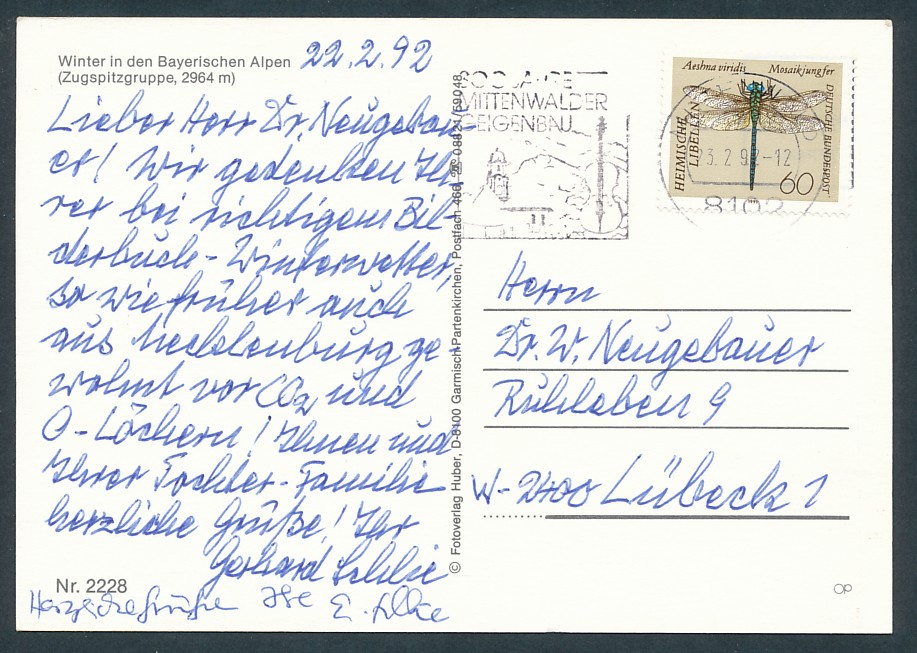 Winter in den Bayerischen Alpen
(Zugspitzgruppe, 2964 m)
22.2.92
Lieber Herr Dr. Neugebau-
er! Wir gedenken Ih-
rer bei richtigem Bil-
derbuch-Winterwetter,
so wie früher auch
aus Mecklenburg ge-
wohnt vor CO2 und
O-Löchern! Ihnen und
Ihrer Tochter-Familie
herzliche Grüße! Ihr
Gerhard
Nr. 2228
Herzliche Grüße Ihre E.
© Fotoverlag Huber, D-8100 Garmisch-Partenkirchen, Postfach 466, ☎ 08821/59048
300 JAHRE
MITTENWALDER
GEIGENBAU
Aeshna viridis Mosaikjungfer
HEIMISCHE
LIBELLEN
DEUTSCHE BUNDESPOST
60
23.2.92-12
8102
Herrn
Dr. W. Neugebauer
Ruhleben 9
W-2400 Lübeck 1